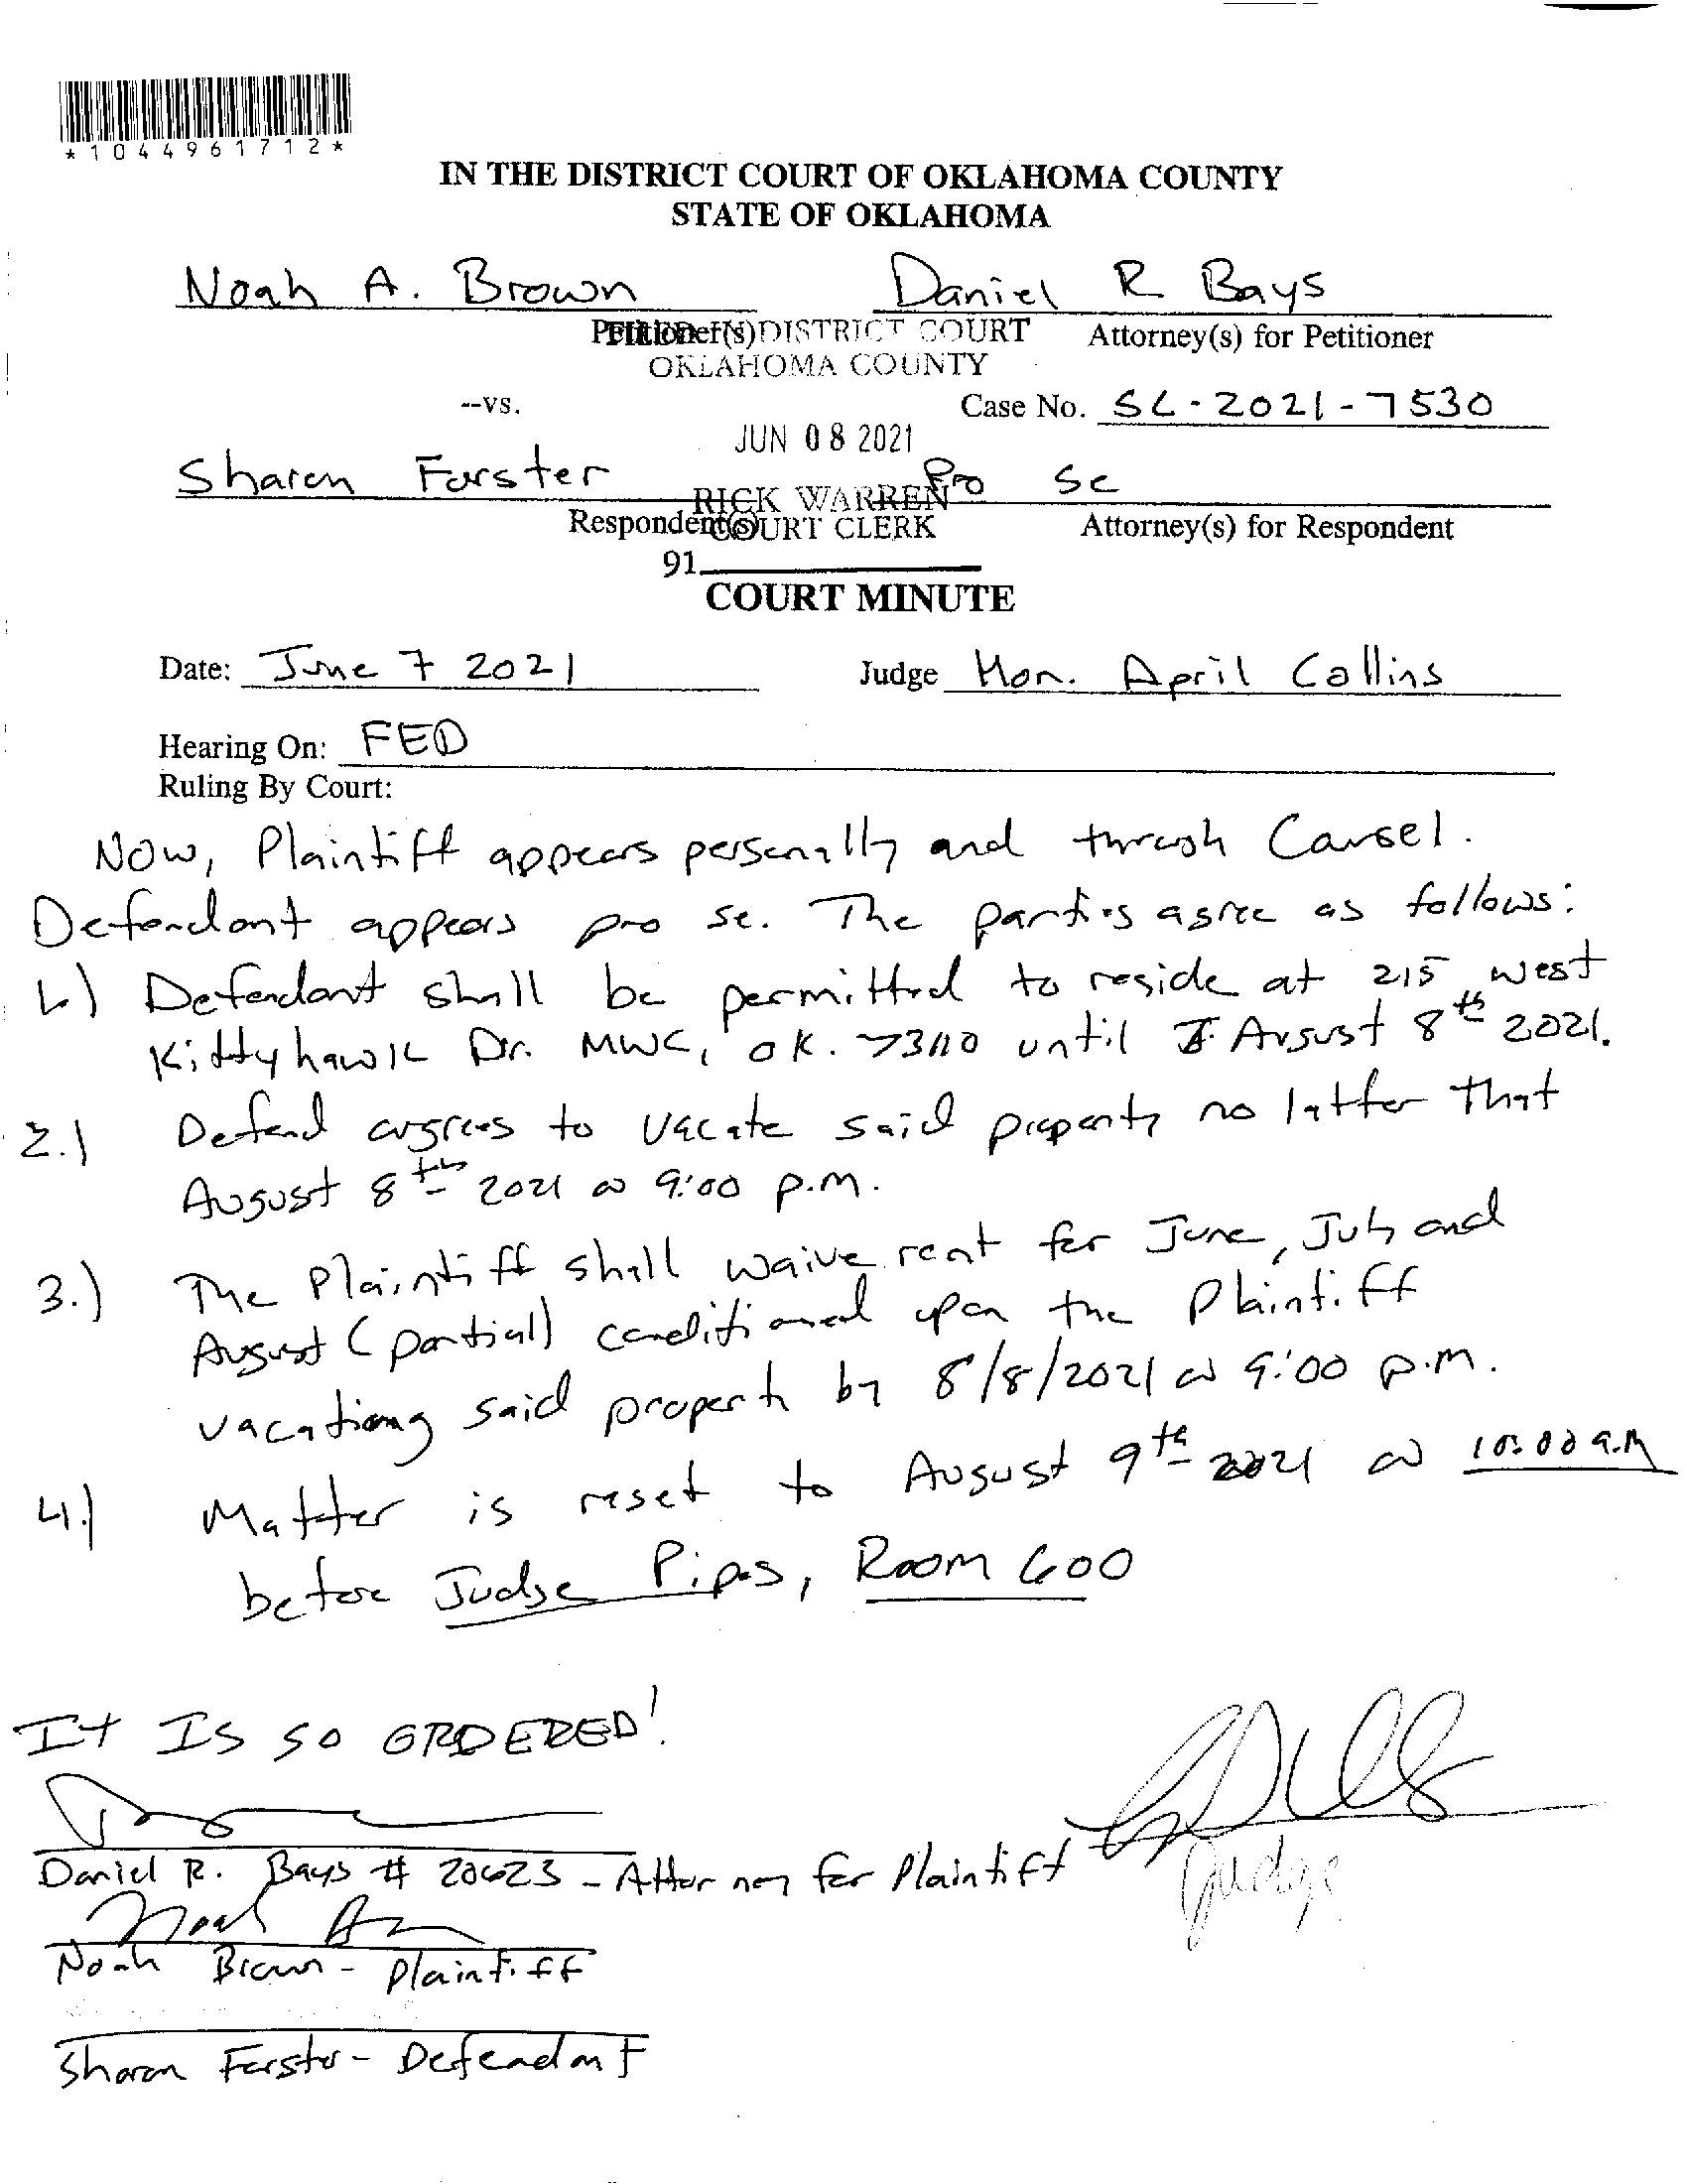 *1044961712*
IN THE DISTRICT COURT OF OKLAHOMA COUNTY
STATE OF OKLAHOMA
Noah A. Brown Daniel R Bays
Petitioner(s) Attorney(s) for Petitioner
FILED IN DISTRICT COURT
OKLAHOMA COUNTY
--vs. Case No. SC-2021-7530
JUN 08 2021
Sharon Forster Pro Se
RICK WARREN
Respondent(s) Attorney(s) for Respondent
COURT CLERK
91
COURT MINUTE
Date: June 7 2021 Judge Hon. April Collins
Hearing On: FED
Ruling By Court:
Now, Plaintiff appears personally and through Counsel.
Defendant appears pro se. The parties agree as follows:
1.) Defendant shall be permitted to reside at 215 West
Kittyhawk Dr. MWC, OK. 73110 until August 8th 2021.
2.) Defend agrees to vacate said property no latter that
August 8th 2021 @ 9:00 p.m.
3.) The Plaintiff shall waive rent for June, July and
August (partial) conditioned upon the Plaintiff
vacationg said property by 8/8/2021 @ 9:00 p.m.
4.) Matter is reset to August 9th 2021 @ 10:00 a.m
before Judge Pipes, Room 600
It IS SO ORDERED!
Daniel R. Bays # 20623 - Attorney for Plaintiff
Judge
Noah Brown - Plaintiff
Sharon Forster - Defendant